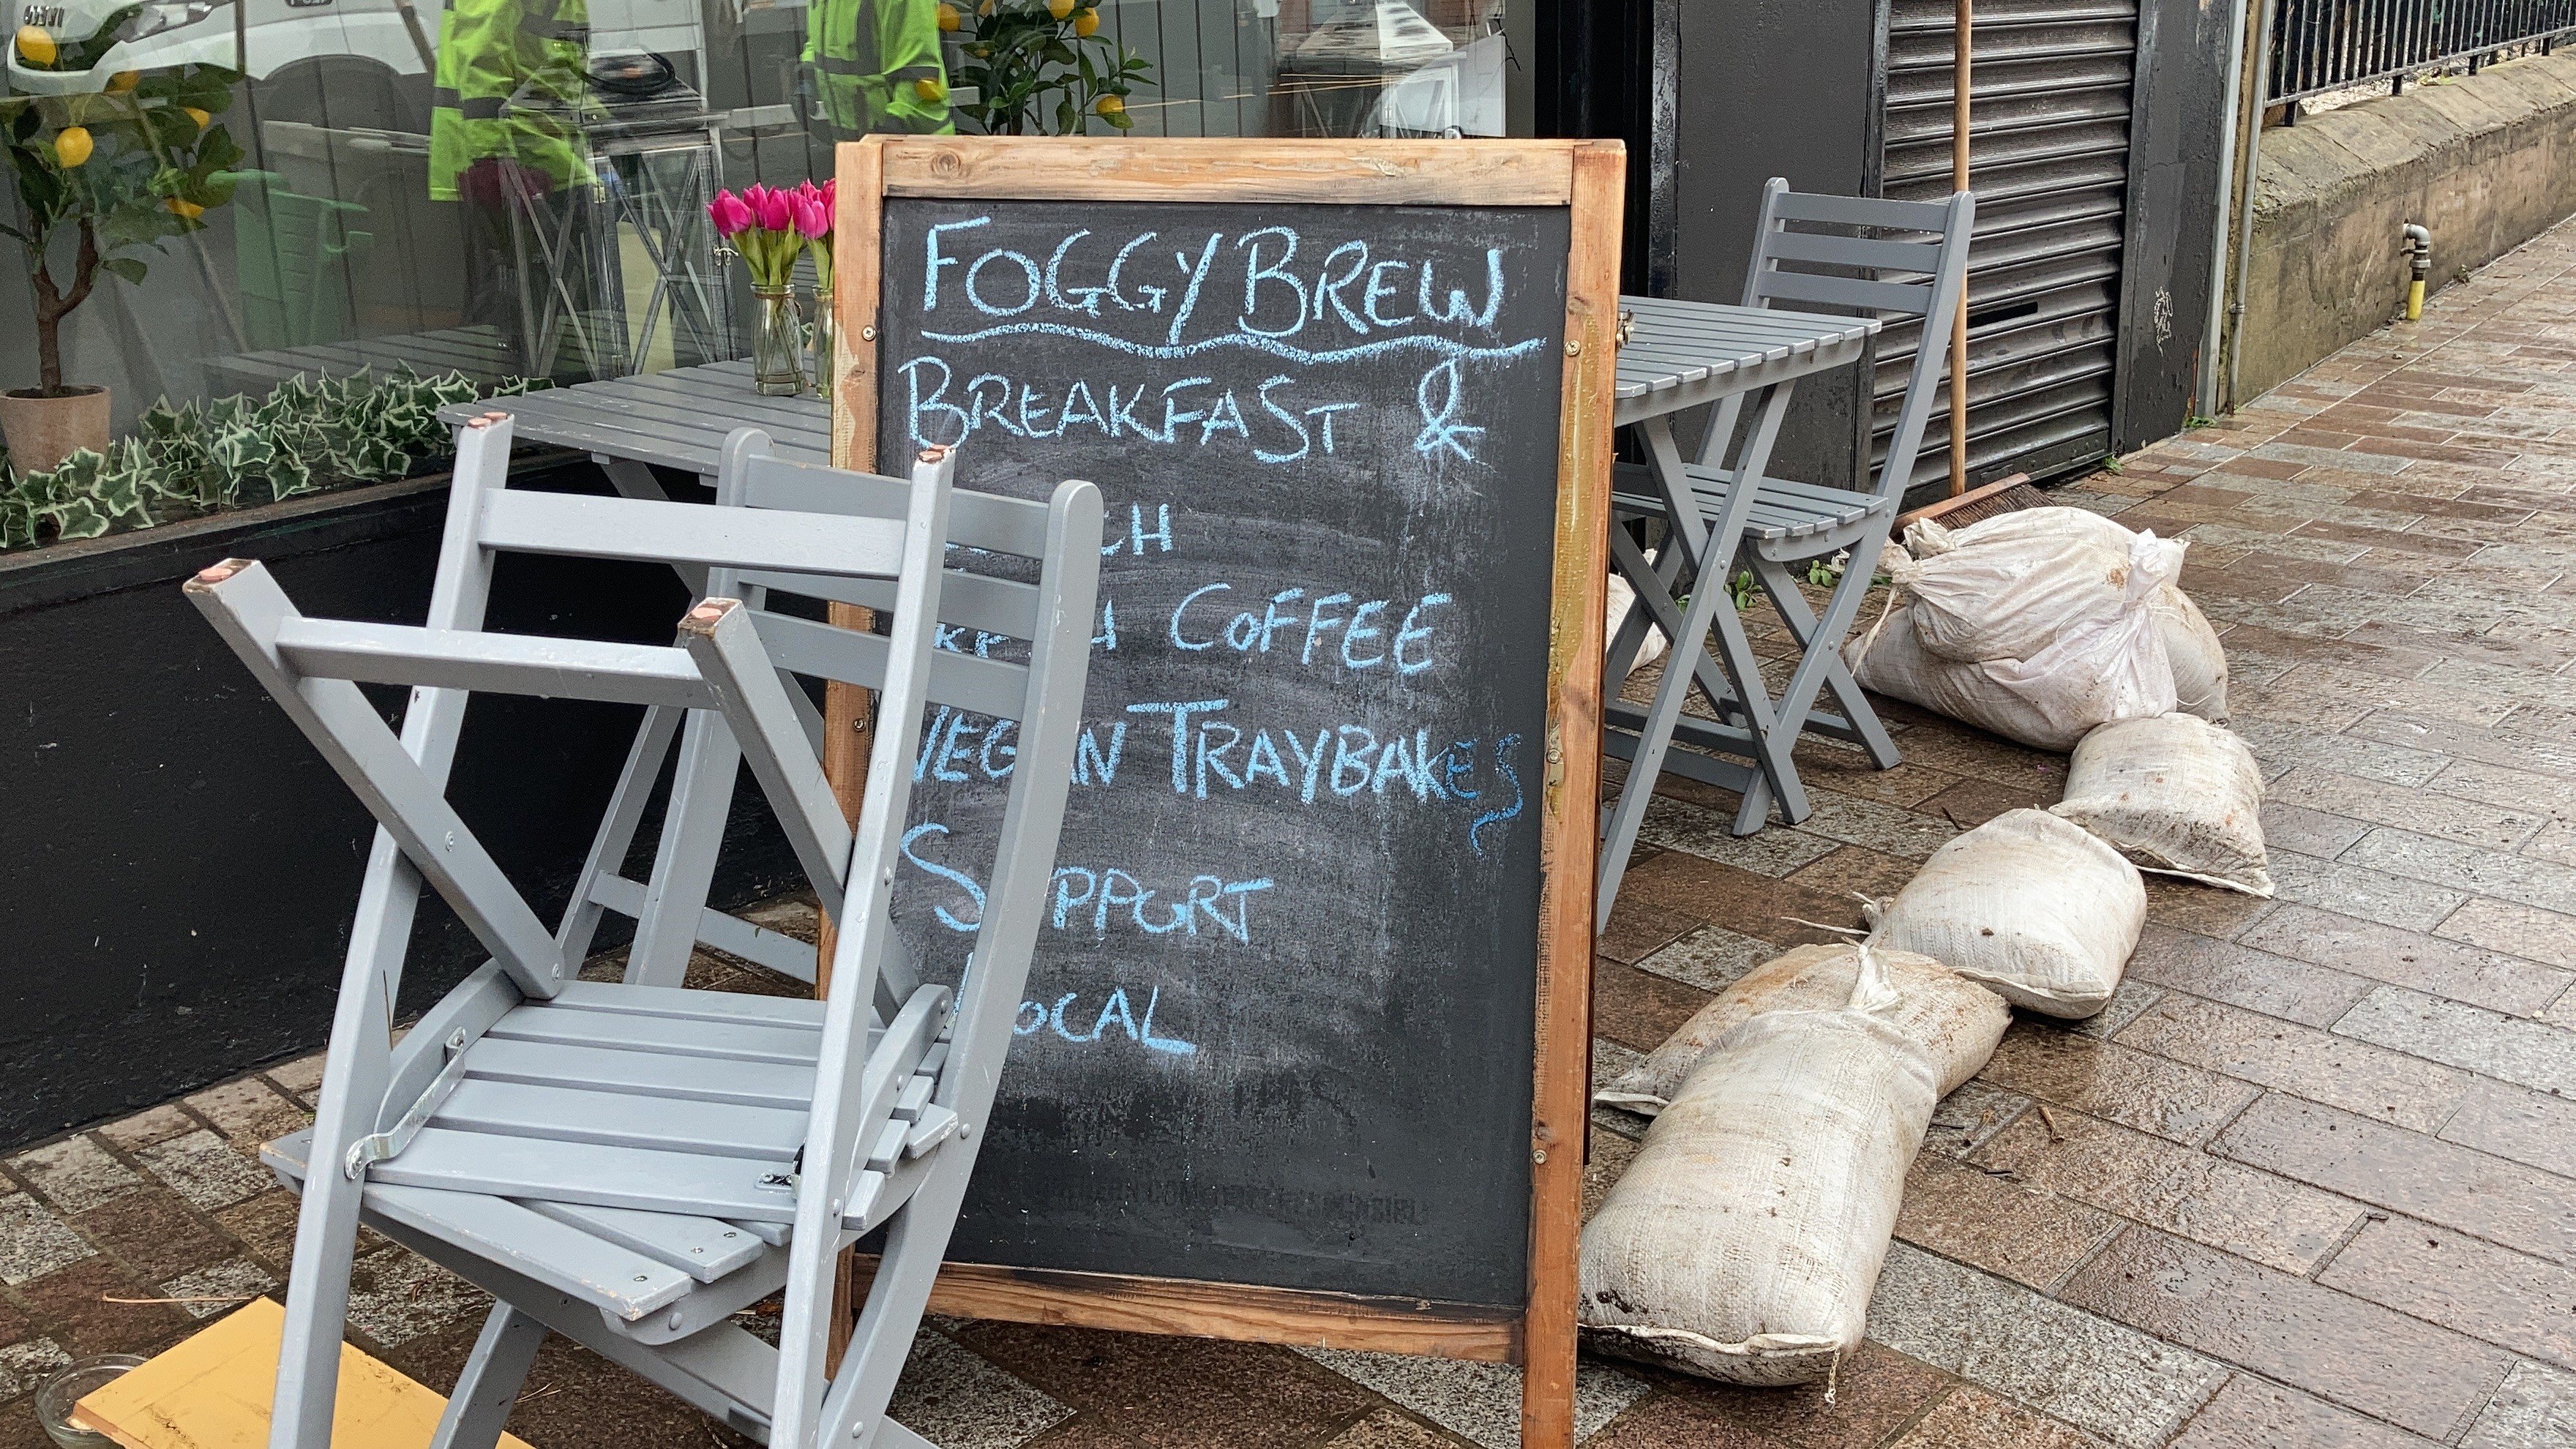 FOGGY BREW
BREAKFAST &
CH
COFFEE
VEGAN TRAYBAKES
SUPPORT
LOCAL